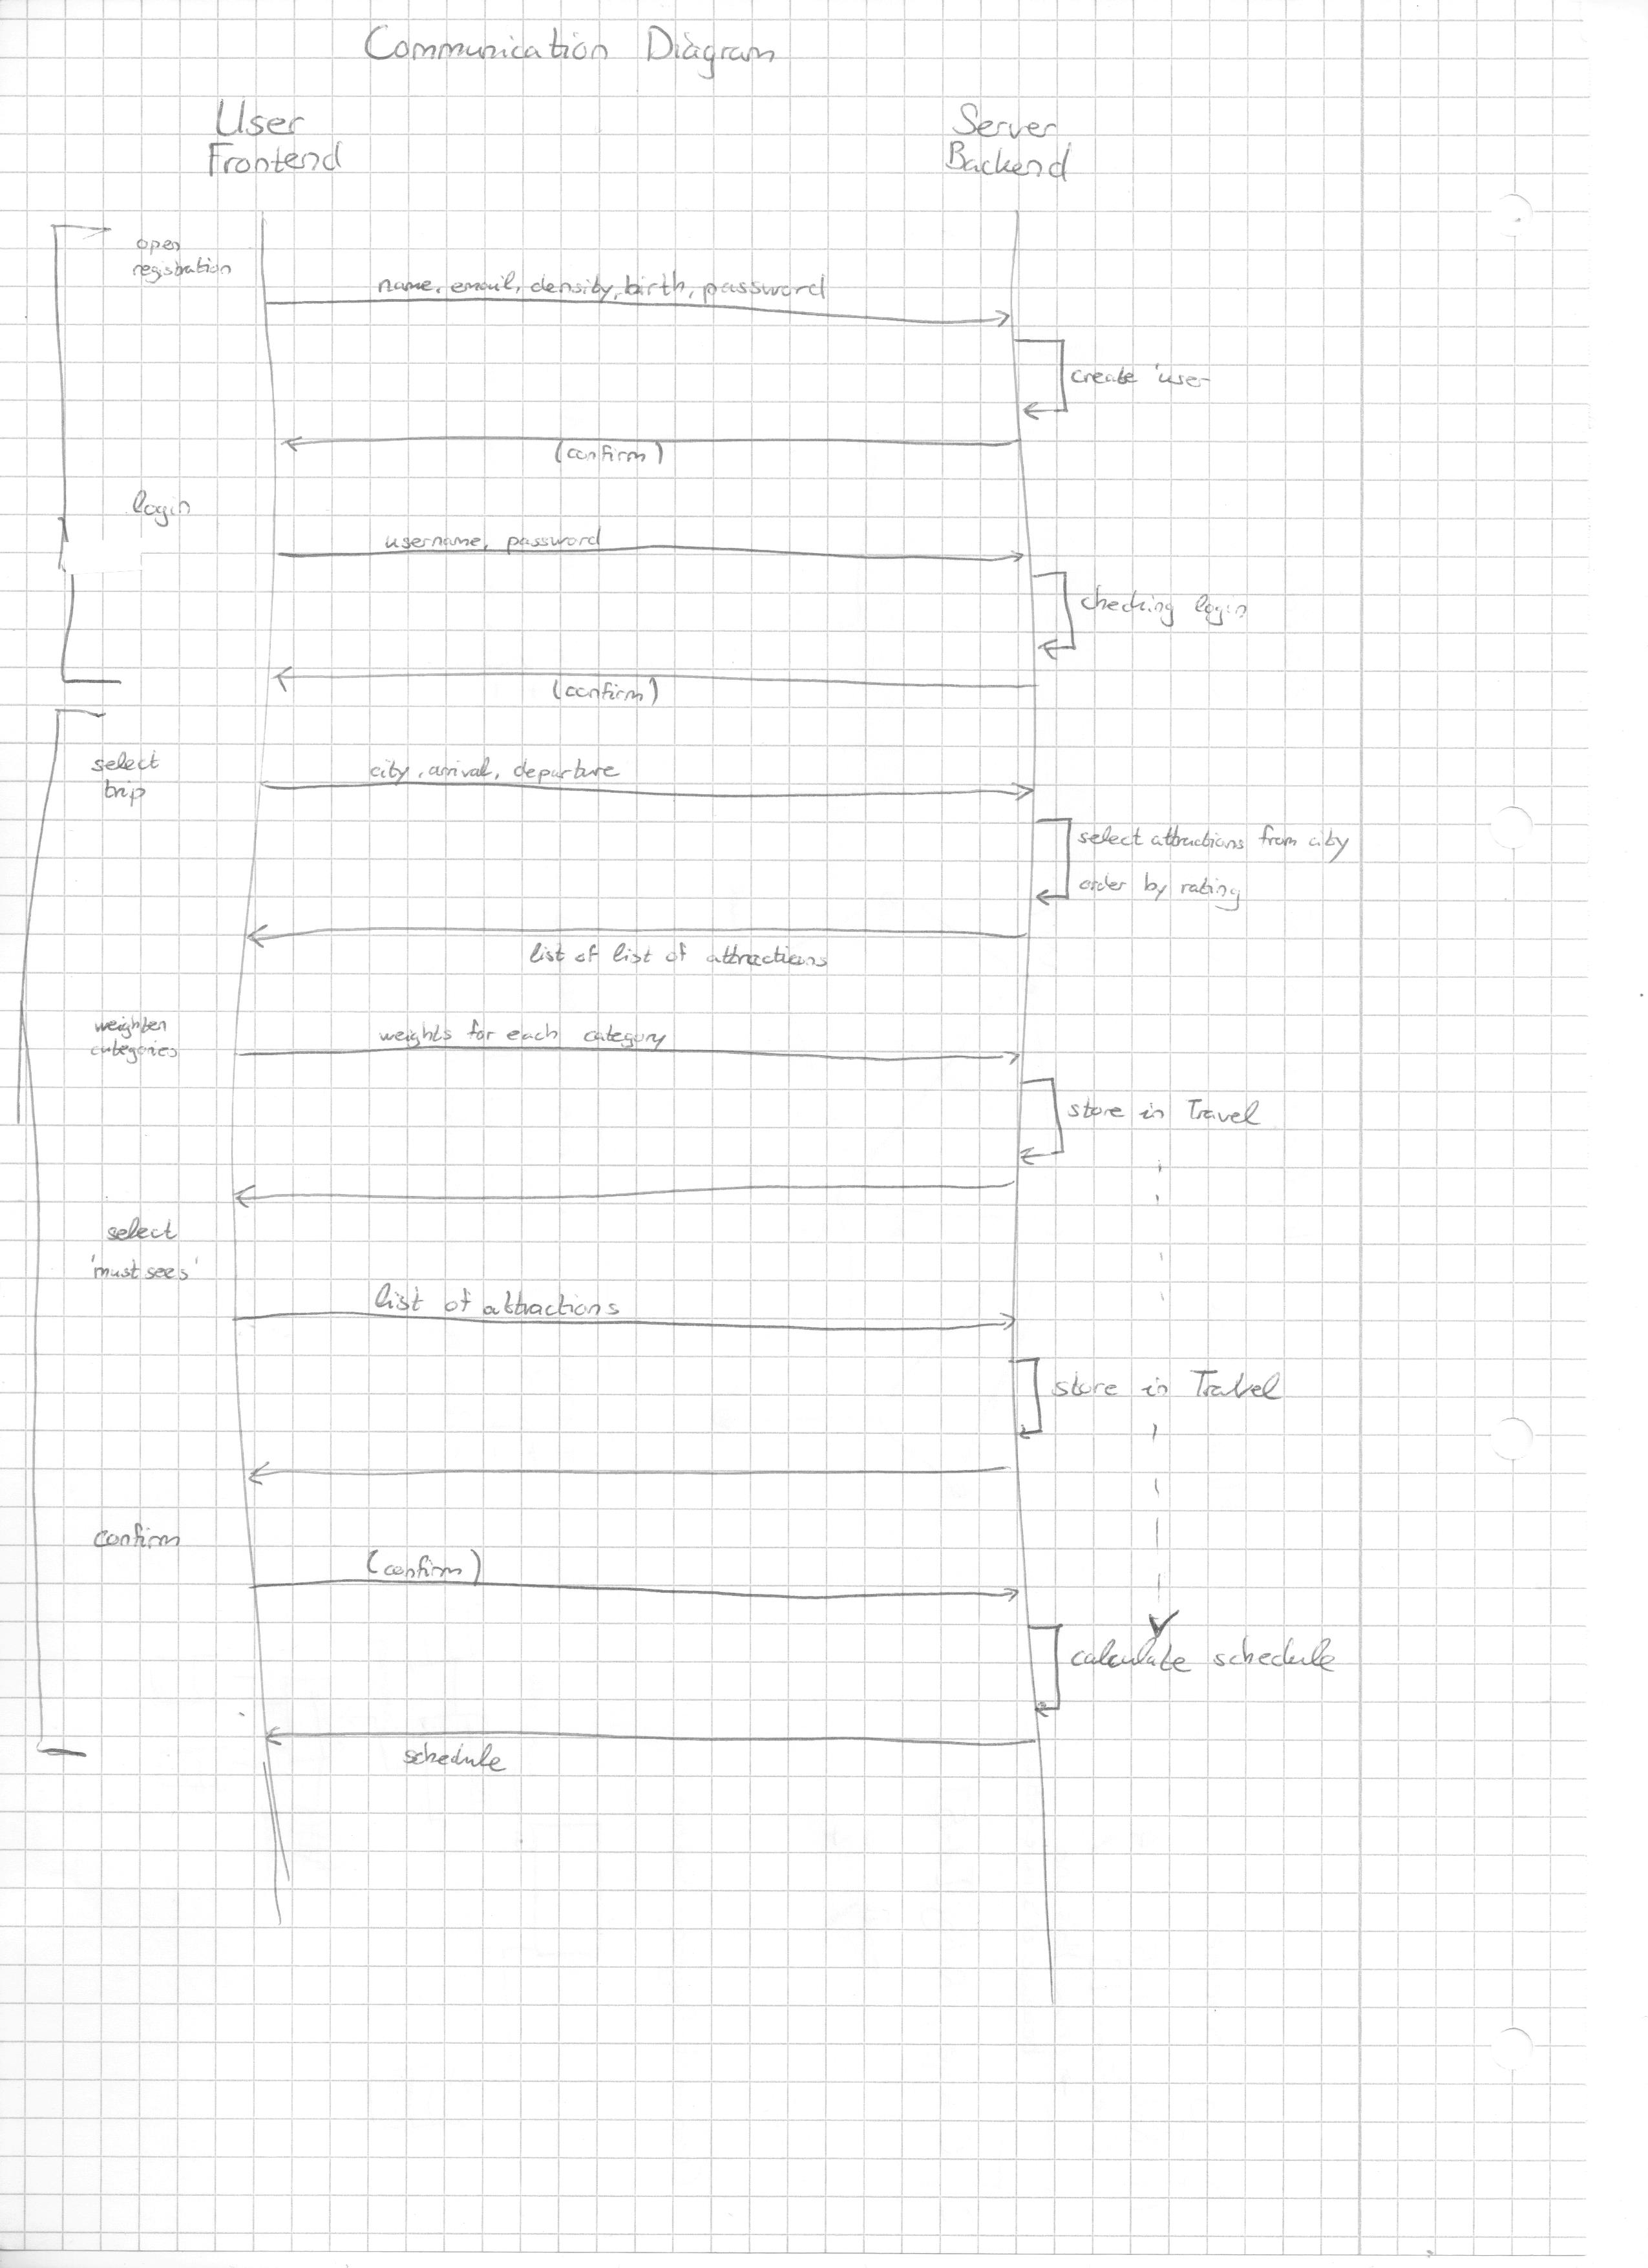 Communication Diagram
User
Frontend
Server
Backend
open
registration
name, email, density, birth, password
create user
(confirm)
login
username, password
checking login
(confirm)
select
trip
city, arrival, departure
select attractions from city
order by rating
list of list of attractions
weighten
categories
weights for each category
store in Travel
select
'must sees'
list of attractions
store in Travel
confirm
(confirm)
calculate schedule
schedule